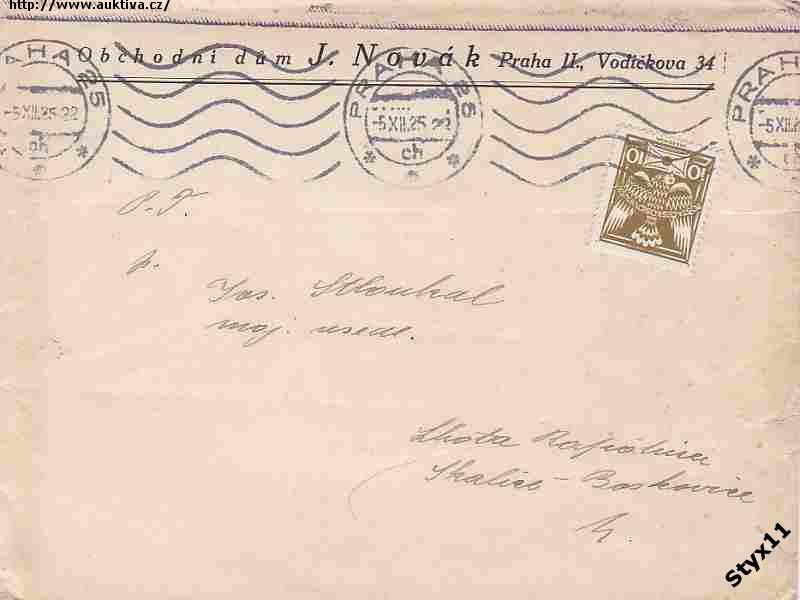 http://www.auktiva.cz/
Obchodní dům J. Novák Praha II., Vodičkova 34
PRAHA 25
-5XII.25.22
ch
PRAHA 25
-5XII.25.22
ch
PRAHA
-5XII.25
10
10
P. T.
p.
Jos. Stloukal
maj. usedl.
Lhota Rapotina
Skalice - Boskovice
Styx11